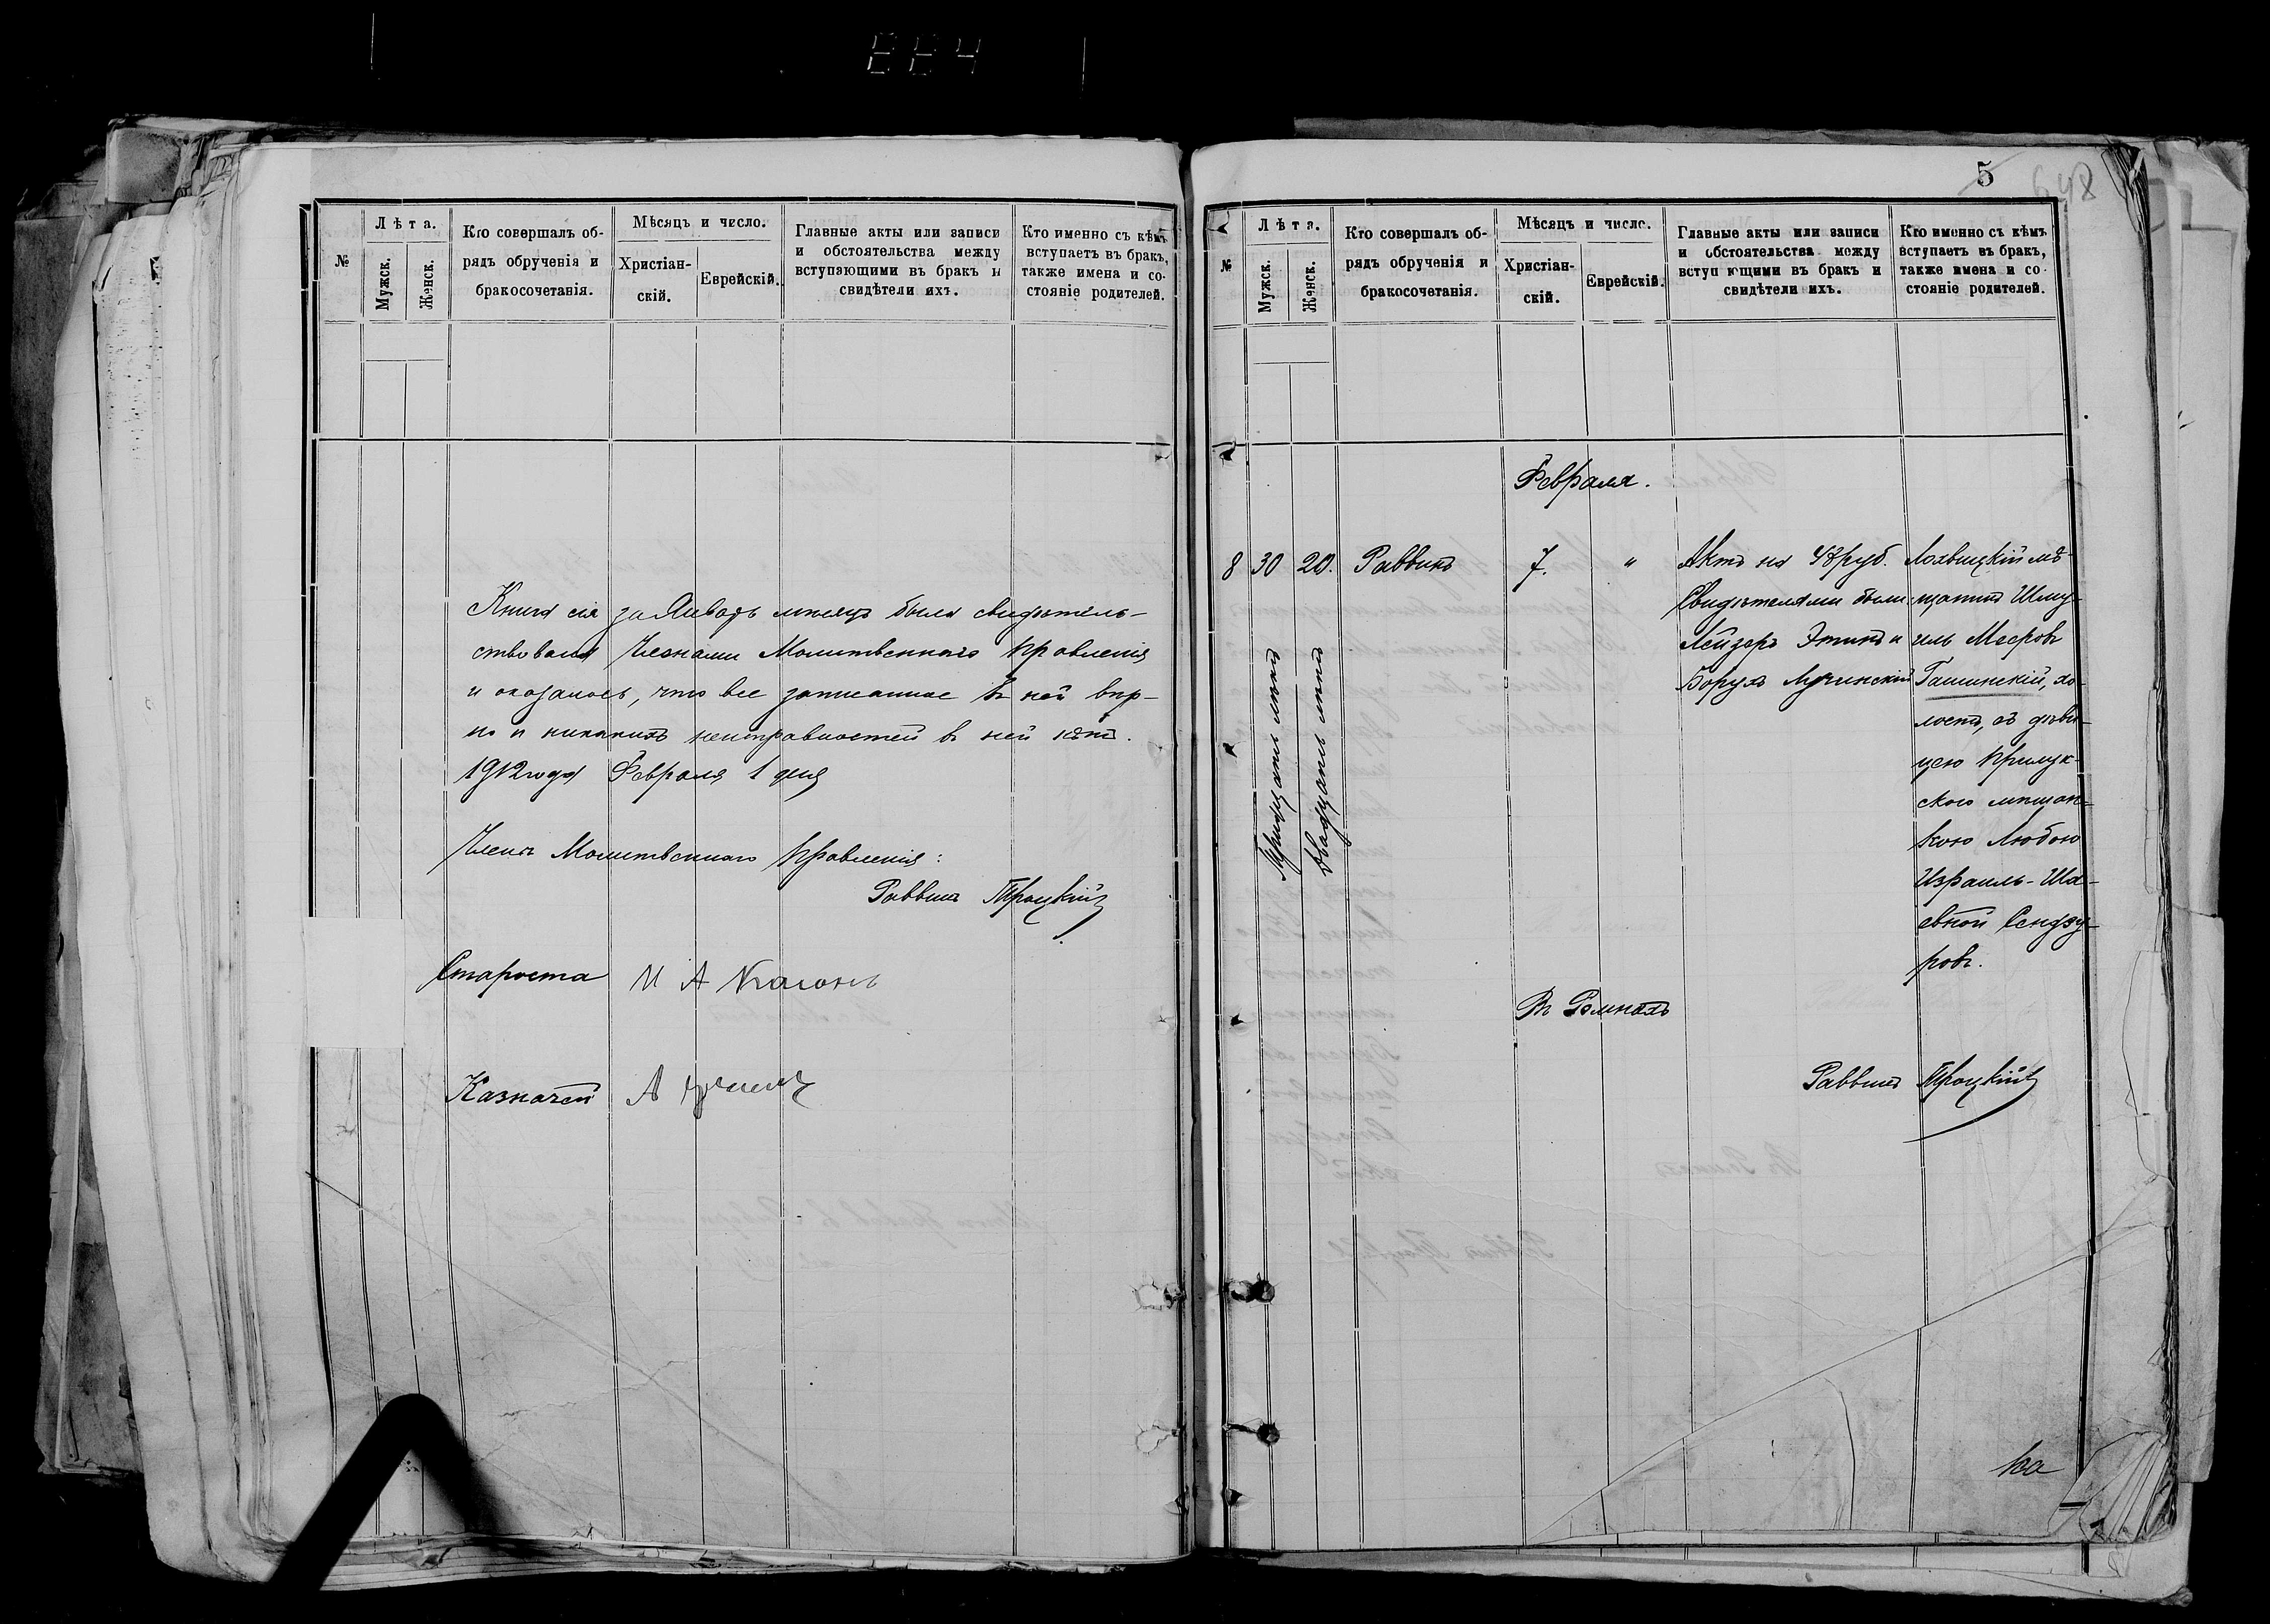 664
№
Лѣта.
Мужск.
Женск.
Кто совершалъ об-
рядъ обрученія и
бракосочетанія.
Мѣсяцъ и число.
Христіан-
скій.
Еврейскій.
Главные акты или записи
и обстоятельства между
вступающими въ бракъ и
свидѣтели ихъ.
Кто именно съ кѣмъ
вступаетъ въ бракъ,
также имена и со-
стояніе родителей.
Книга сія за Январь мѣсяцъ была свидѣтель-
ствована Членами Молитвеннаго Правленія
и оказалось, что все записанное въ ней вѣр-
но и никакихъ неисправностей въ ней нѣтъ.
1912 года Февраля 1 дня
Члены Молитвеннаго Правленія:
Раввинъ Троцкій
Староста И А Каганъ
Казначей А
5
648
№
Лѣта.
Мужск.
Женск.
Кто совершалъ об-
рядъ обрученія и
бракосочетанія.
Мѣсяцъ и число.
Христіан-
скій.
Еврейскій.
Главные акты или записи
и обстоятельства между
вступ ющими въ бракъ и
свидѣтели ихъ.
Кто именно съ кѣмъ
вступаетъ въ бракъ,
также имена и со-
стояніе родителей.
Февраля.
8 30 20. Раввинъ 7. "
Тридцать лѣтъ
Двадцать лѣтъ
Актъ на 48 руб.
Свидѣтелями были:
Лейзеръ Этинъ и
Борухъ Лучинскій
Лохвицкій мѣ-
щанинъ Шму-
иль Мееровъ
Гашинскій, хо-
лостъ, съ дѣви-
цею Прилук-
скою мѣщан-
кою Любою
Израиль-Ша-
евной Сендэу-
ровъ.
Въ Ромнахъ
Раввинъ Троцкій